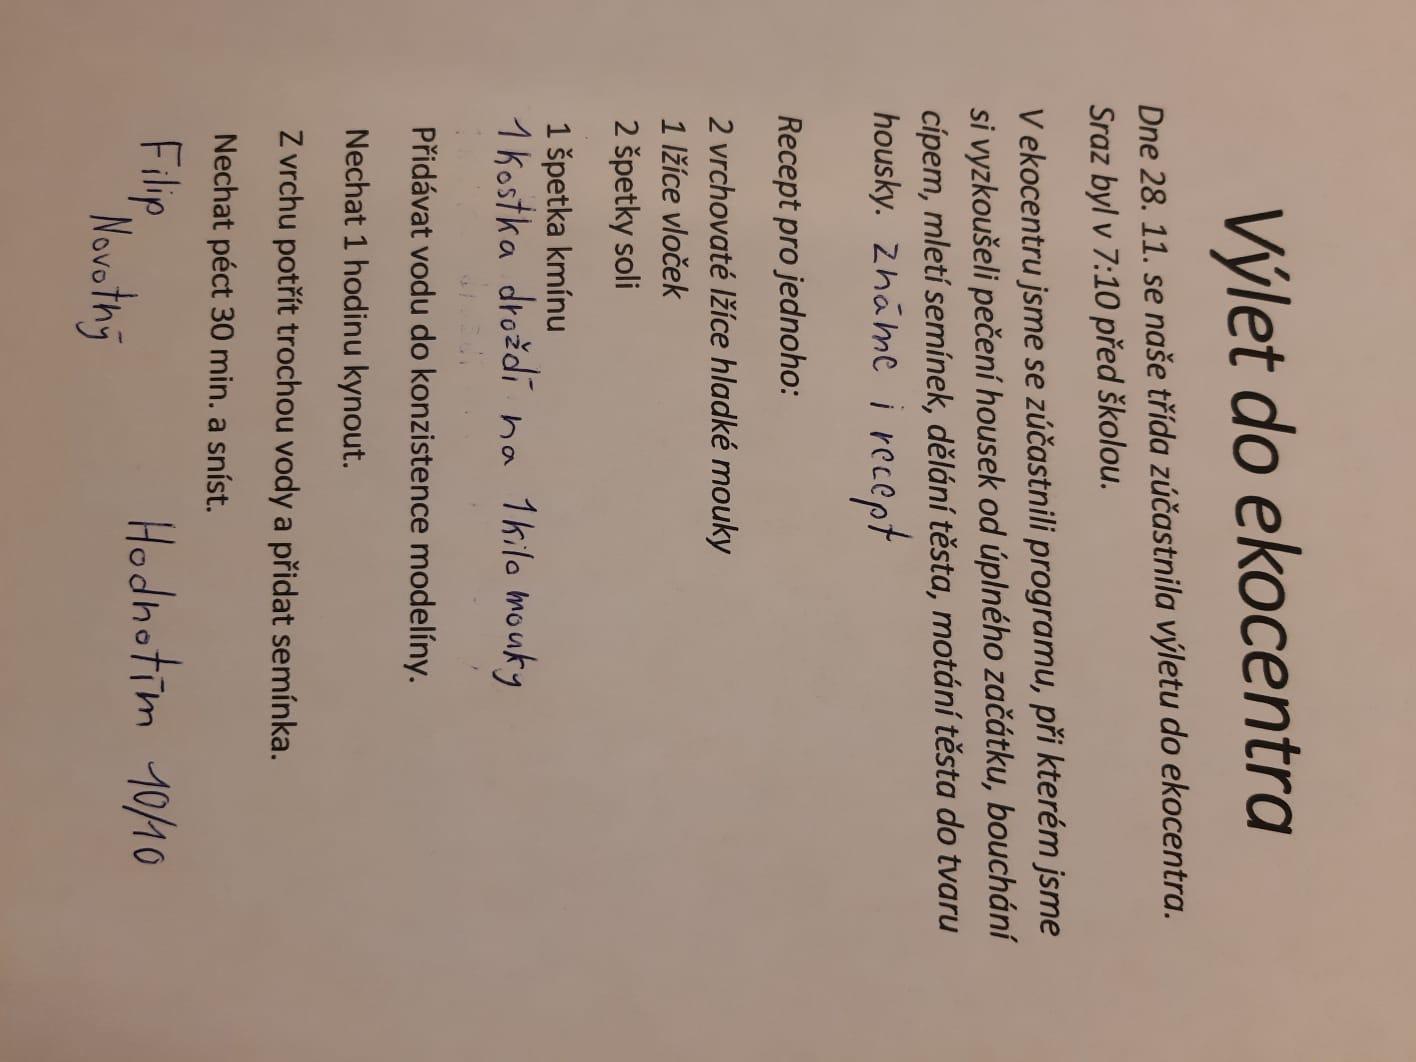 Výlet do ekocentra
Dne 28. 11. se naše třída zúčastnila výletu do ekocentra.
Sraz byl v 7:10 před školou.
V ekocentru jsme se zúčastnili programu, při kterém jsme
si vyzkoušeli pečení housek od úplného začátku, bouchání
cípem, mletí semínek, dělání těsta, motání těsta do tvaru
housky. známe i recept
Recept pro jednoho:
2 vrchovaté lžíce hladké mouky
1 lžíce vloček
2 špetky soli
1 špetka kmínu
1 kostka droždí na 1 kilo mouky
Přidávat vodu do konzistence modelíny.
Nechat 1 hodinu kynout.
Z vrchu potřít trochou vody a přidat semínka.
Nechat péct 30 min. a sníst.
Filip Novotný
Hodnotím 10/10